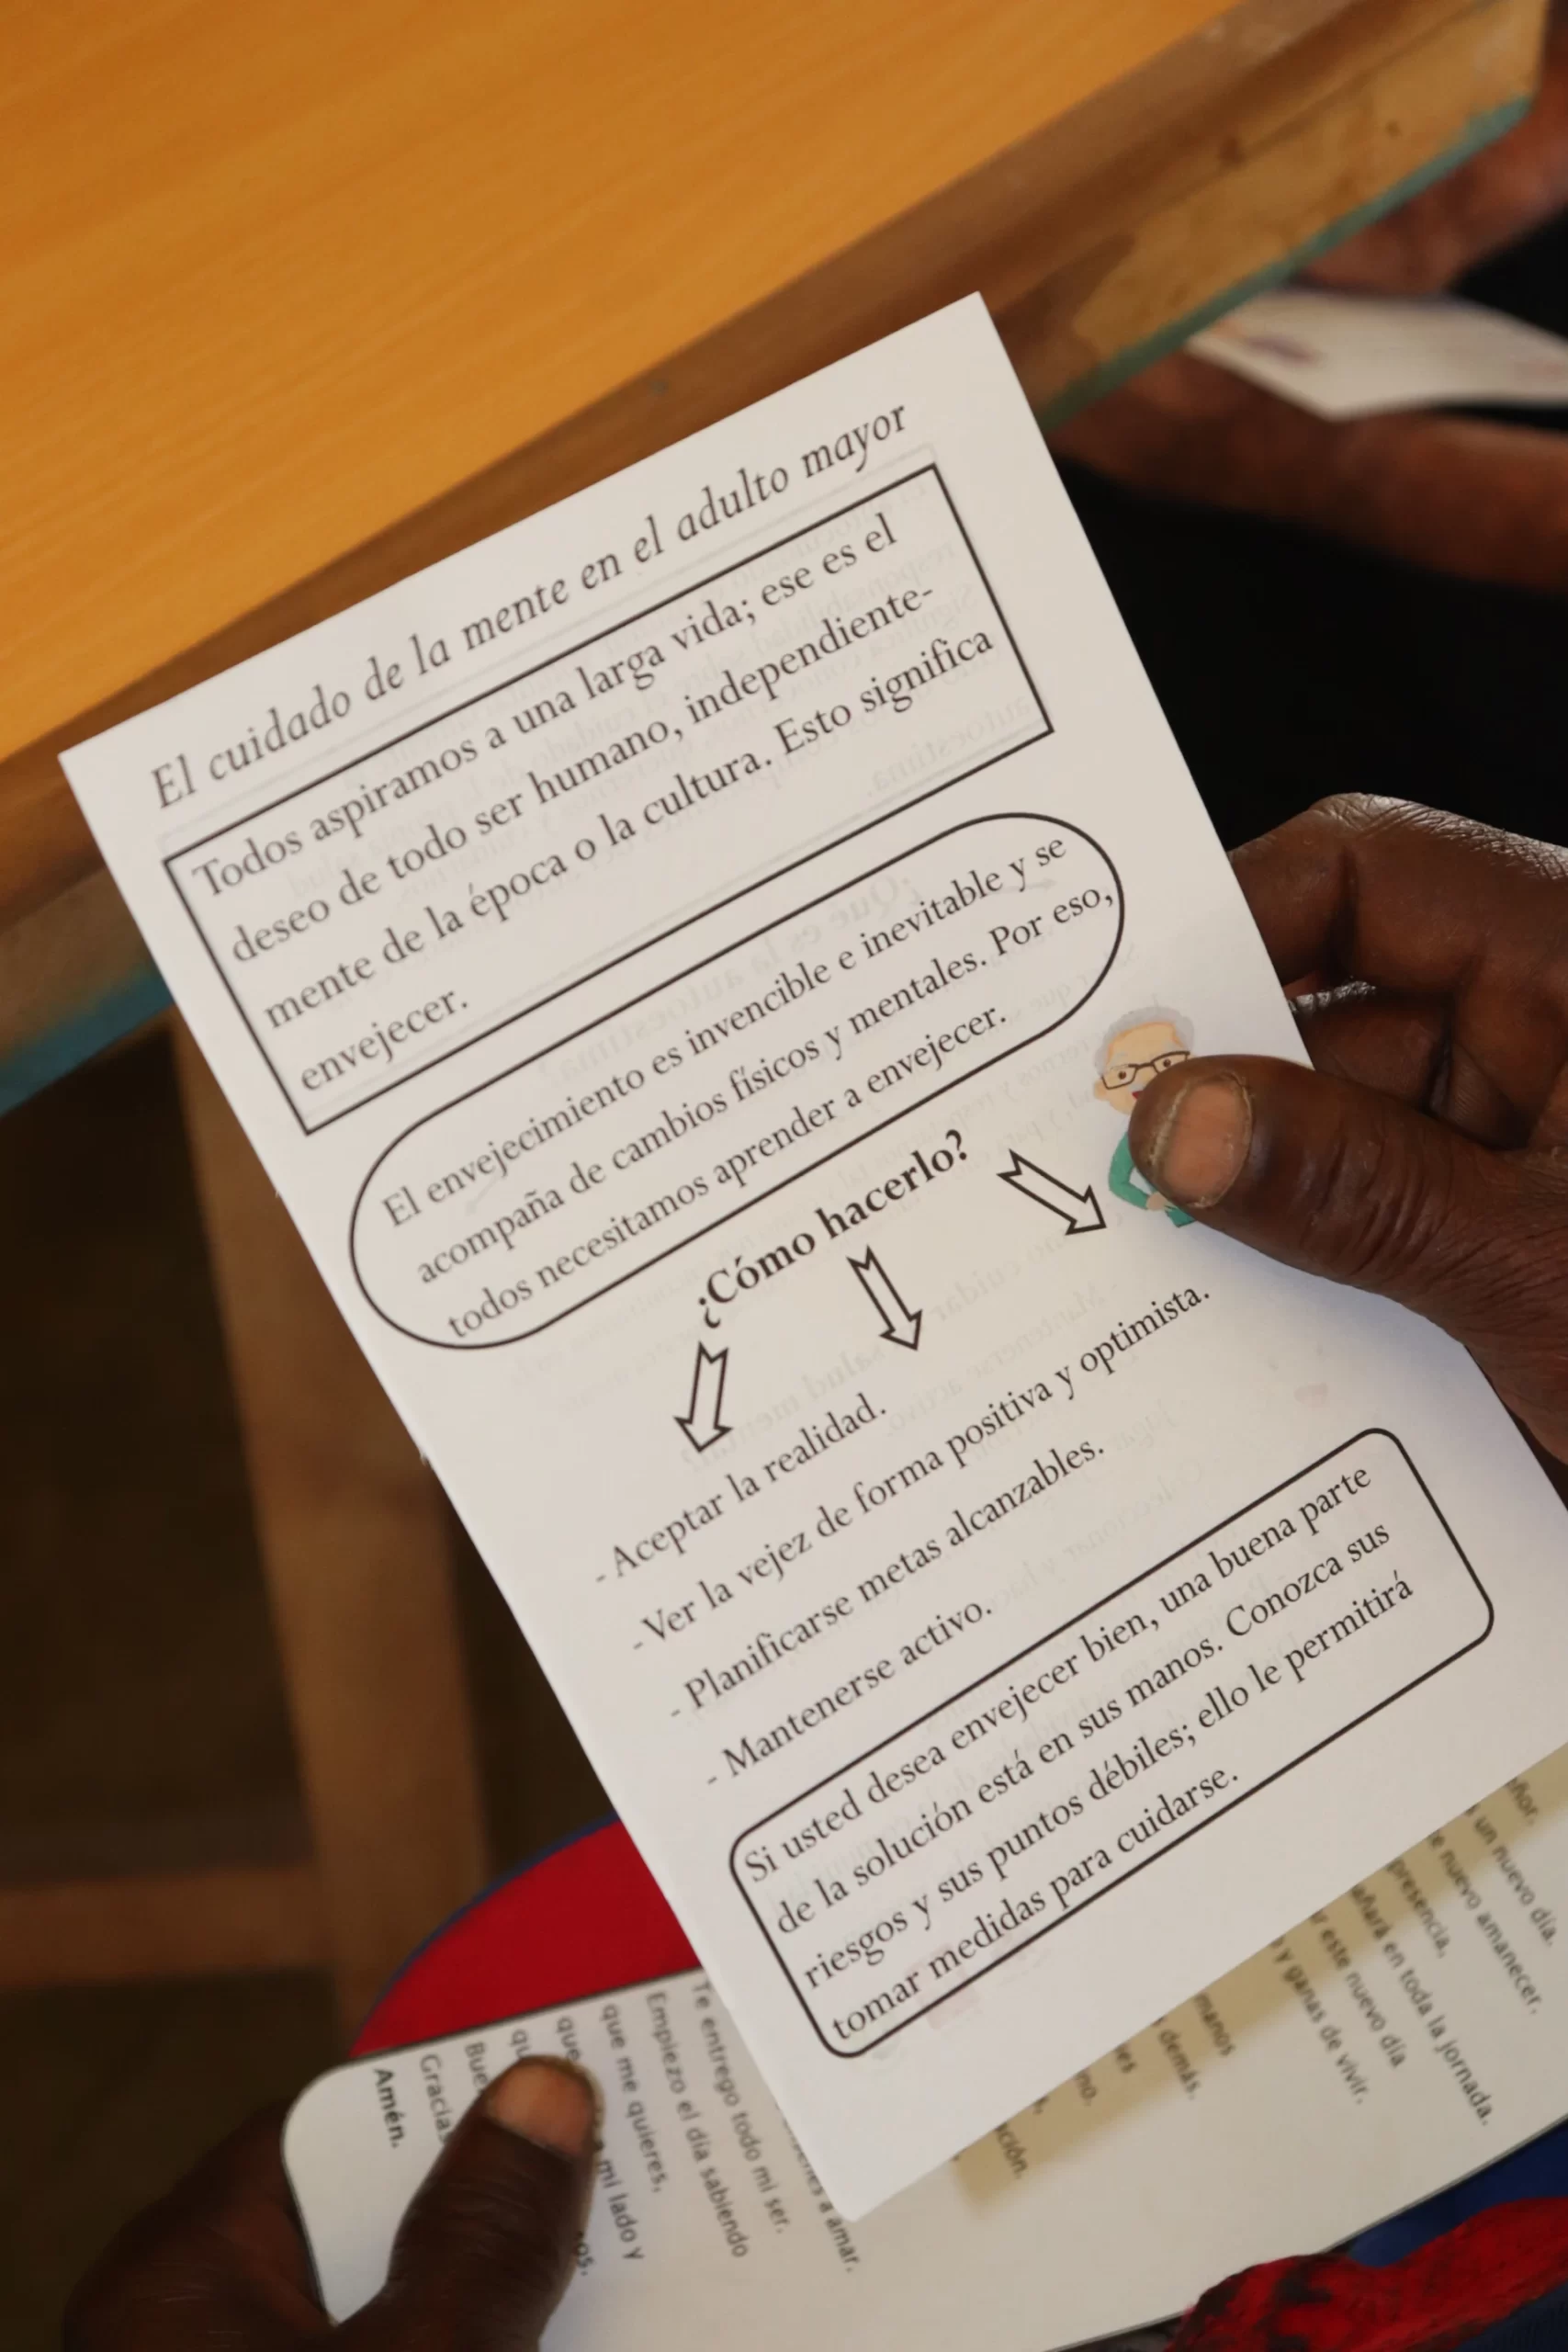 El cuidado de la mente en el adulto mayor
Todos aspiramos a una larga vida; ese es el
deseo de todo ser humano, independiente-
mente de la época o la cultura. Esto significa
envejecer.
El envejecimiento es invencible e inevitable y se
acompaña de cambios físicos y mentales. Por eso,
todos necesitamos aprender a envejecer.
¿Cómo hacerlo?
- Aceptar la realidad.
- Ver la vejez de forma positiva y optimista.
- Planificarse metas alcanzables.
- Mantenerse activo.
Si usted desea envejecer bien, una buena parte
de la solución está en sus manos. Conozca sus
riesgos y sus puntos débiles; ello le permitirá
tomar medidas para cuidarse.
un nuevo día.
nuevo amanecer,
presencia,
en toda la jornada.
este nuevo día
y ganas de vivir.
manos
demás.
a amar.
Te entrego todo mi ser.
Empiezo el día sabiendo
que me quieres,
que mi lado y
Gracias
Amén.